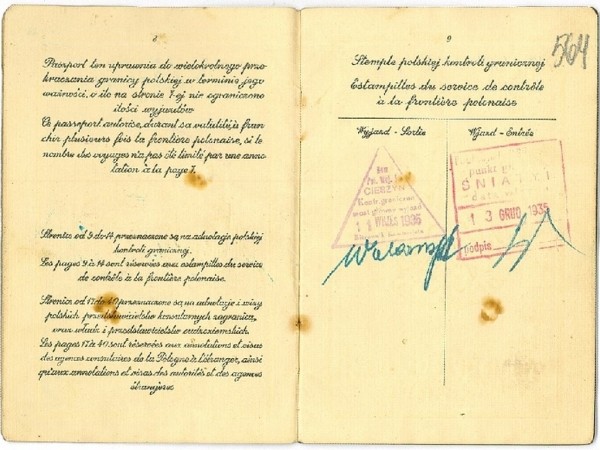 8
Paszport ten uprawnia do wielokrotnego prze
kraczania granicy polskiej w terminie jego
ważności, o ile na stronie 7-ej nie ograniczono
ilości wyjazdów
Ce passeport autorise, durant sa validité, à fran
chir plusieurs fois la frontière polonaise, si le
nombre des voyages n'a pas été limité par une anno
tation à la page 7.
Stronice od 9 do 14 przeznaczone są na adnotacje polskiej
kontroli granicznej.
Les pages 9 à 14 sont réservées aux estampilles du service
de contrôle à la frontière polonaise.
Stronice od 17 do 40 przeznaczone są na adnotacje i wizy
polskich przedstawicielstw konsularnych zagranicą,
oraz władz i przedstawicielstw cudzoziemskich.
Les pages 17 à 40 sont réservées aux annotations et visas
des agences consulaires de la Pologne à l'étranger, ainsi
qu'aux annotations et visas des autorités et des agences
étrangères
9
564
Stemple polskiej kontroli granicznej
Estampilles du service de contrôle
à la frontière polonaise
Wyjazd - Sortie
Wjazd - Entrée
CIESZYN
Kontr. graniczna
1935
punkt
ŚNIATYN
13 GRUD 1935
podpis